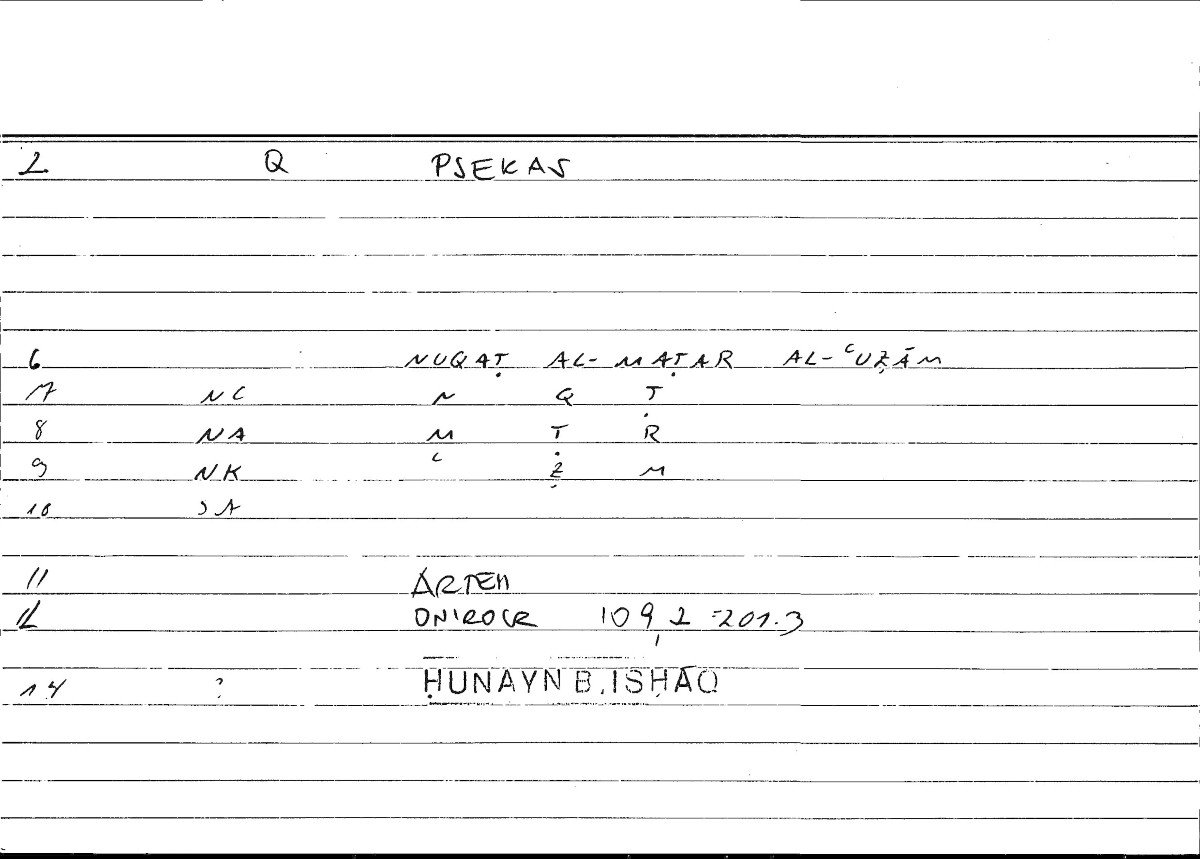 2 Q PSEKAS
6 NUQAṬ AL-MAṬAR AL-ʿUẒĀM
7 NC N Q Ṭ
8 NA M Ṭ R
9 NK ʿ Ẓ M
10 SA
11 ARTEM
12 ONIROCR 109,2 = 201.3
14 ? ḤUNAYN B. ISḤĀQ